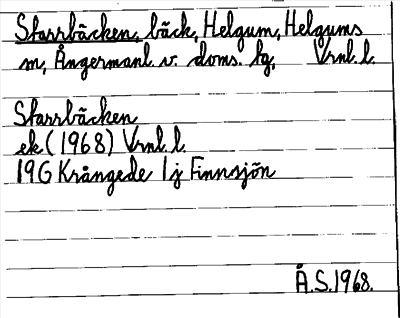 Starrbäcken, bäck, Helgum, Helgums
m, Ångermanl. v. doms. fg, Vrnl. l.
Starrbäcken
ek (1968) Vrnl. l.
19G Krångede 1 j Finnsjön
Å.S. 1968.